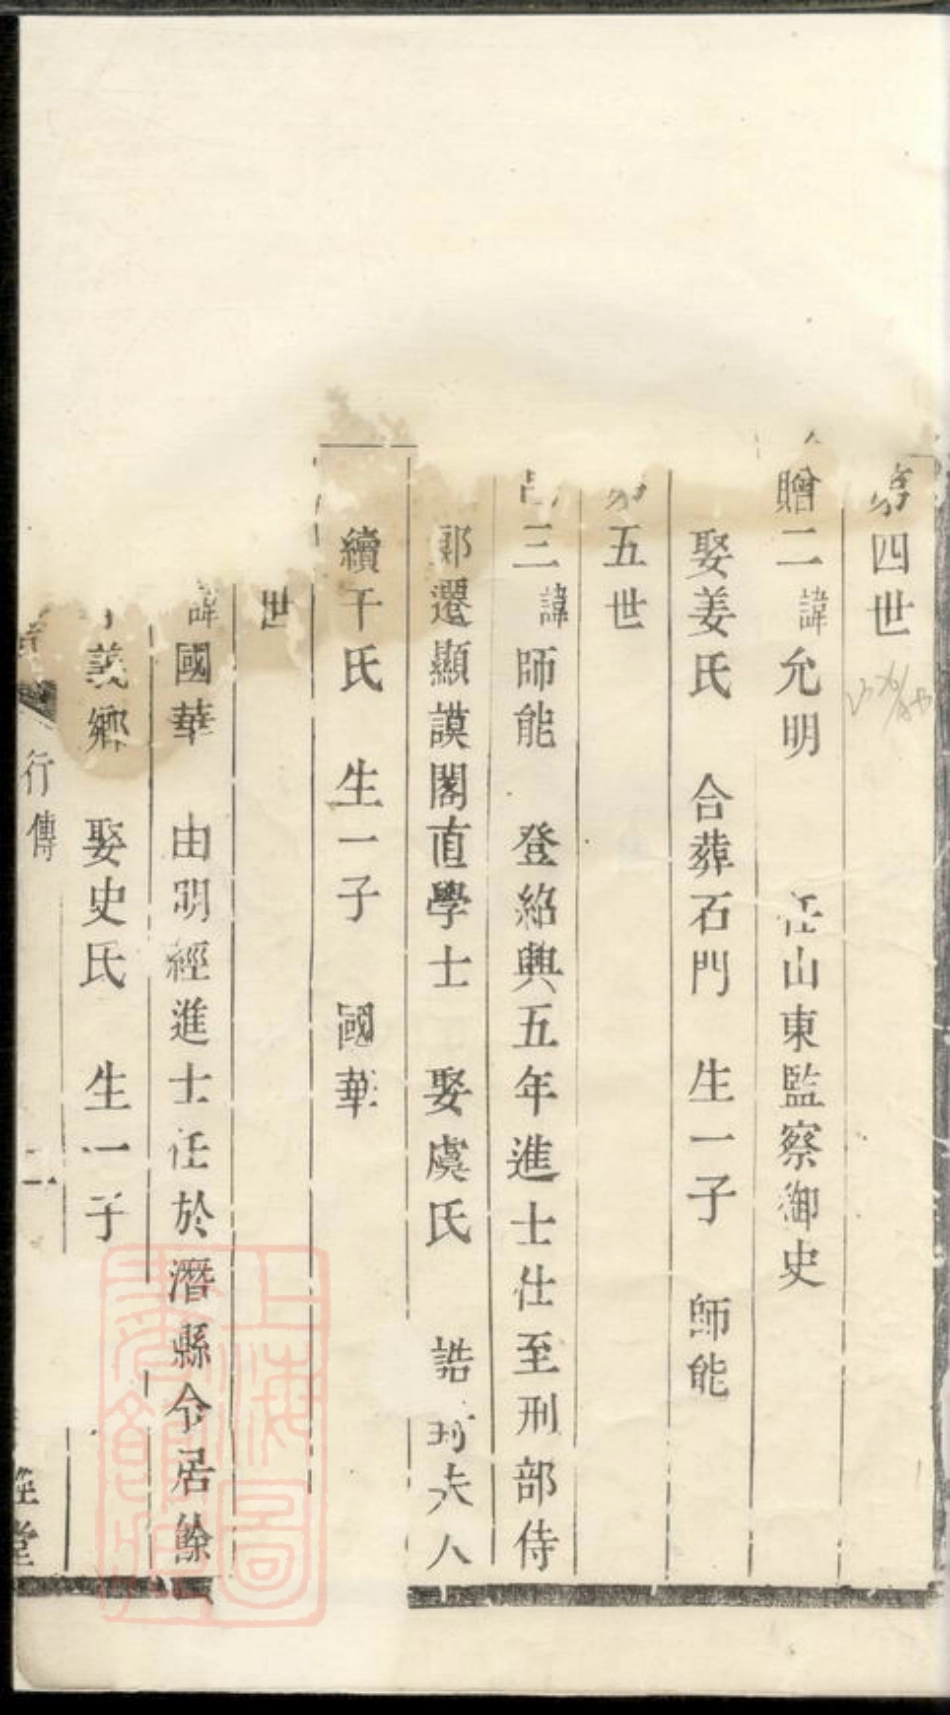 第四世
贈二 諱允明 任山東監察御史
娶姜氏 合葬石門 生一子 師能
五世
三 諱師能 登紹興五年進士仕至刑部侍
郎遷顯謨閣直學士 娶虞氏 誥 夫人
續干氏 生一子 國華
世
諱國華 由明經進士任於潛縣令居餘
義鄉 娶史氏 生一子
行傳 二 堂
上海圖書館藏